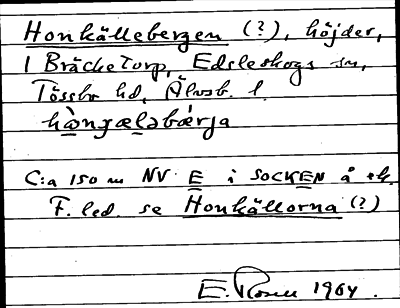 Honkällebergen (?), höjder,
1 Bräcketorp, Edsleskogs sn,
Tössbo hd, Älvsb. l.
hònɟæləbǽrja
C:a 150 m NV. E i SOCKEN å ek.
F. led. se Honkällorna (?)
E. Rosell 1964.